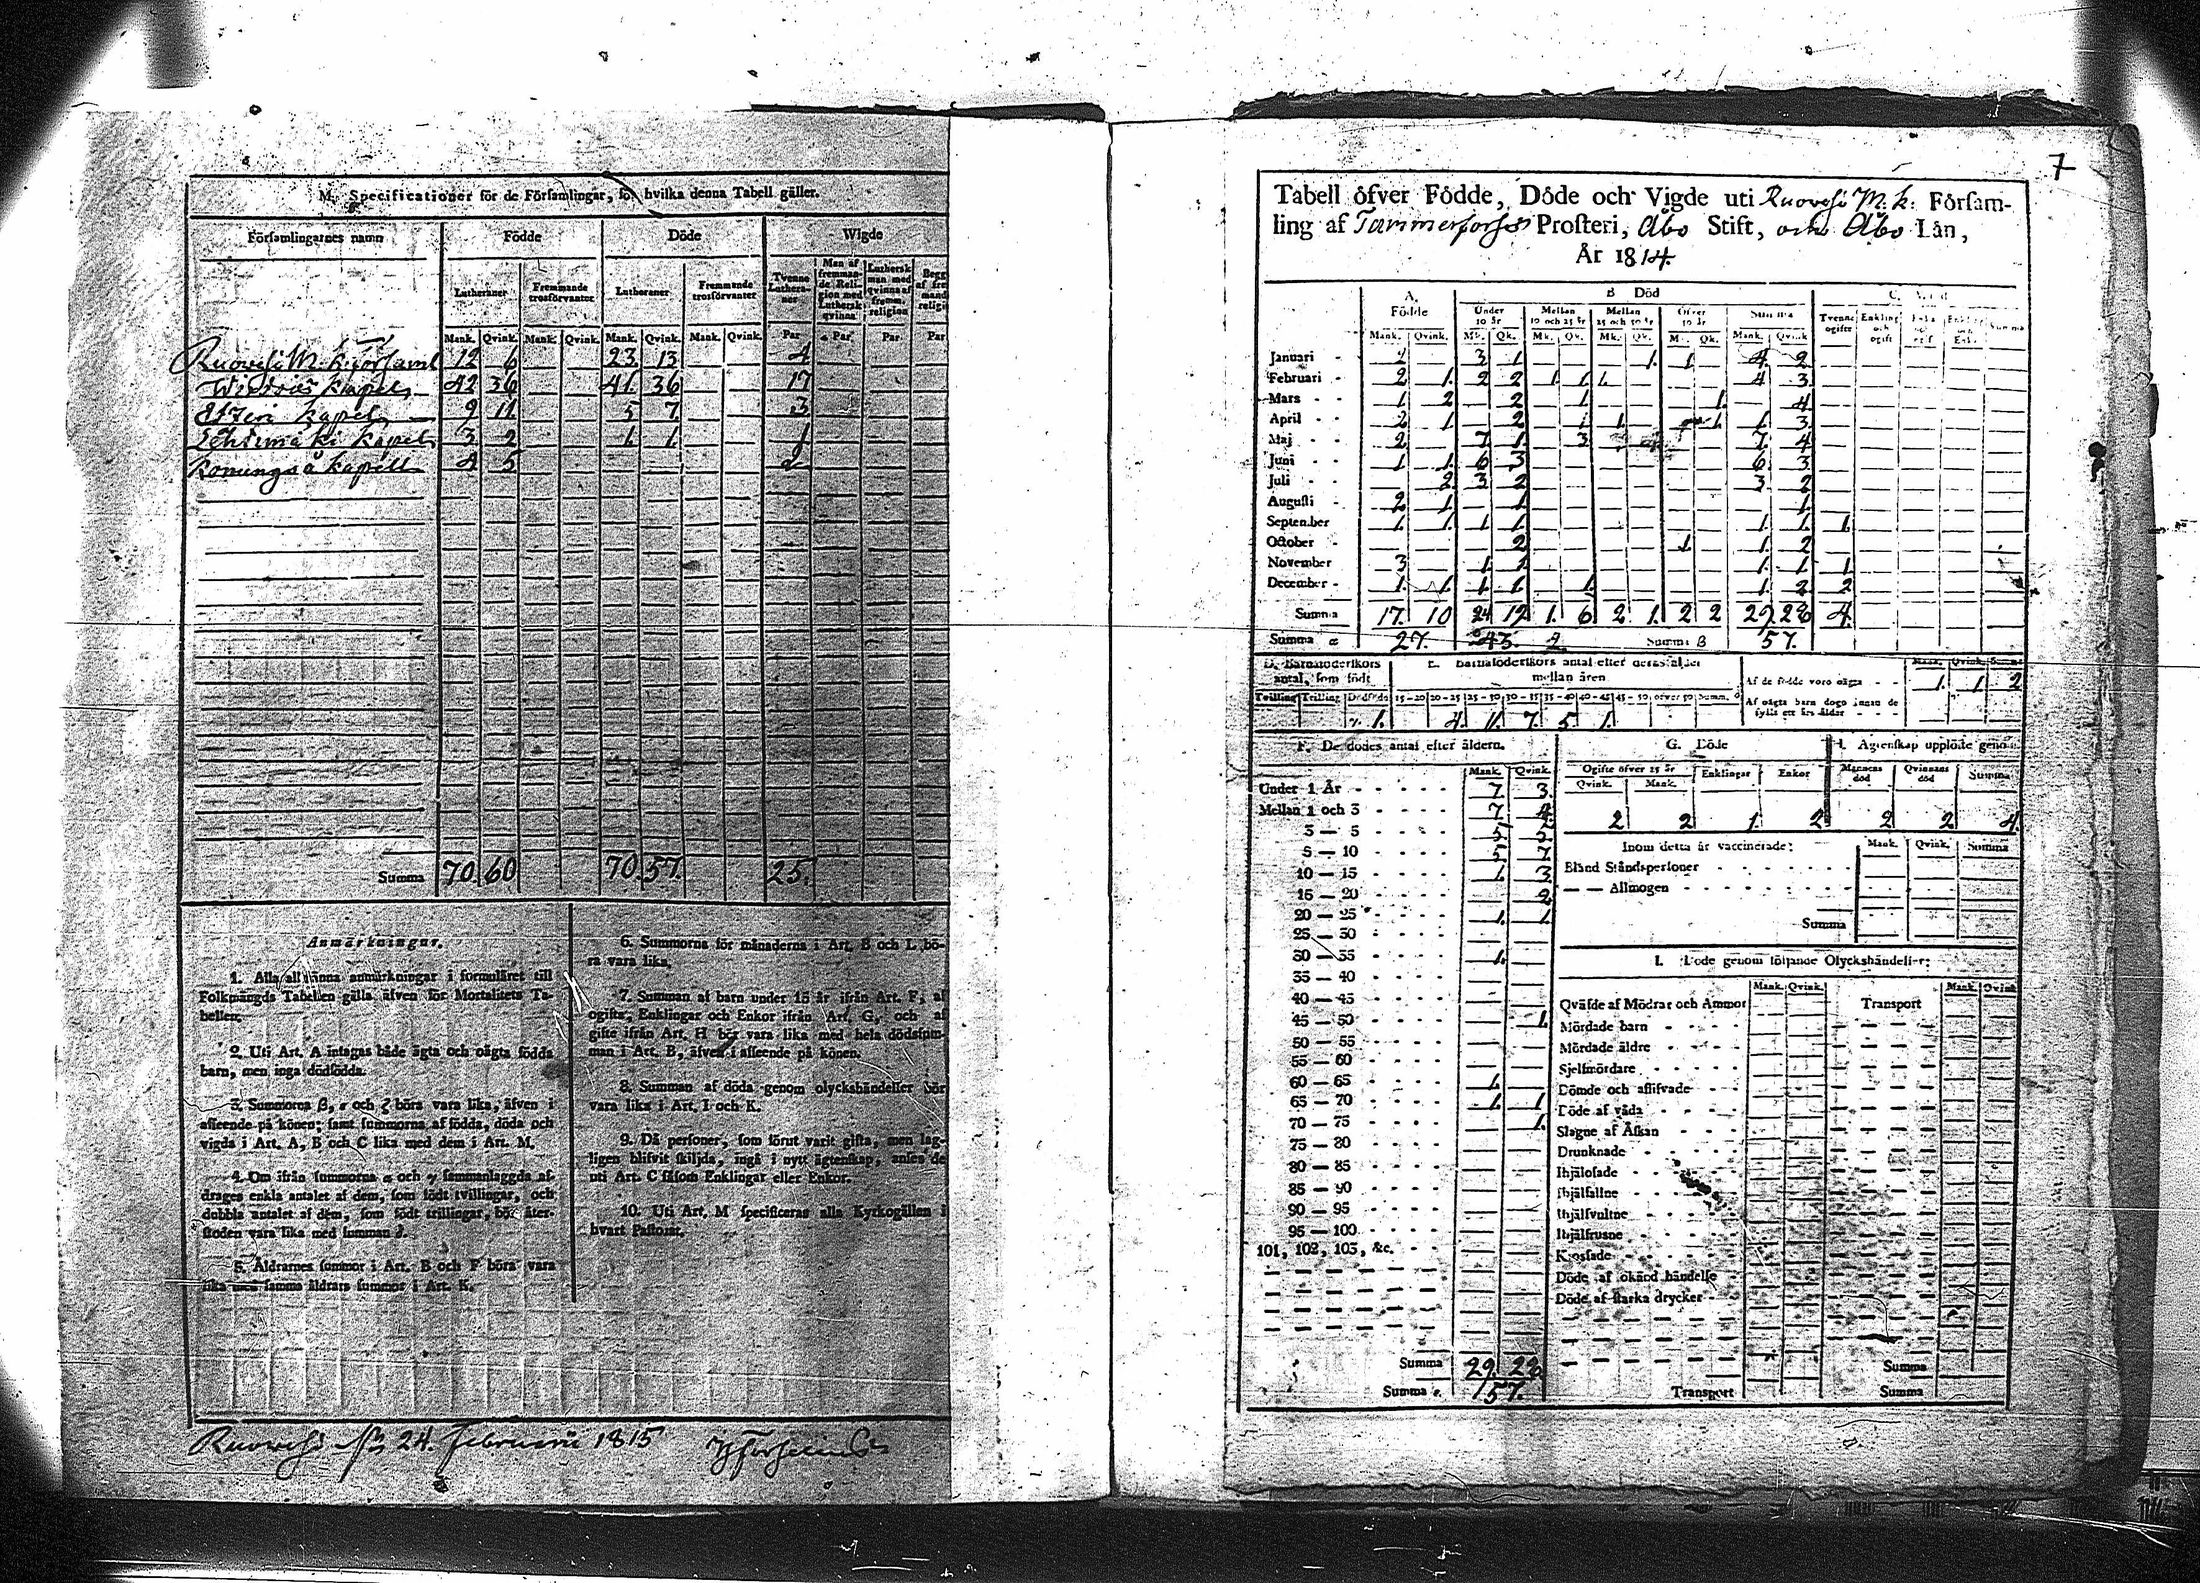 M. Specificationer för de Församlingar, för hvilka denna Tabell gäller.
Församlingarnes namn Födde Döde Wigde
Lutheraner Fremmande trosförvanter Lutheraner Fremmande trosförvanter Tvenne Lutheraner Man af fremmande Religion med Luthersk qvinna Luthersk man med qvinna af fremm. religion
Mank. Qvink. Mank. Qvink. Mank. Qvink. Mank. Qvink. Par Par Par Par
Ruovesi M. k. församl 12 6 23. 13 4
Wirdois kapel 42 36 41. 36 17
Etseri kapel 9 11 5 7 3
kapel 3 2 1. 1. 1
Konungså kapell 4 5 2
Summa 70. 60 70. 57. 25.
Anmärkningar.
1. Alla allmänna anmärkningar i formuläret till
Folkmängds Tabellen gälla äfven för Mortalitets Ta-
bellen.
2. Uti Art. A intagas både ägta och oägta födda
barn, men inga dödfödda.
3. Summorna β, ε och ζ böra vara lika, äfven i
afseende på könen; samt summorna af födda, döda och
vigda i Art. A, B och C lika med dem i Art. M.
4. Om ifrån summorna α och γ sammanlaggda af-
drages enkla antalet af dem, som födt tvillingar, och
dubbla antalet af dem, som födt trillingar, bör åter-
stoden vara lika med summan δ.
5. Åldrarnes summor i Art. B och F böra vara
lika med samma åldrars summor i Art. K.
6. Summorna för månaderna i Art. B och L bö-
ra vara lika.
7. Summan af barn under 15 år ifrån Art. F, af
ogifta, Enklingar och Enkor ifrån Art. G, och af
gifte ifrån Art. H bör vara lika med hela dödssum-
man i Art. B, äfven i afseende på könen.
8. Summan af döda genom olyckshändelser bör
vara lika i Art. I och K.
9. Då personer, som förut varit gifta, men lag-
ligen blifvit skiljda, ingå i nytt ägtenskap, anses de
uti Art. C såsom Enklingar eller Enkor.
10. Uti Art. M specificeras alla Kyrkogällen i
hvart Pastorat.
Ruovesi 24. februarii 1815
7
Tabell öfver Födde, Döde och Vigde uti Ruovesi M. k. Försam-
ling af Tammerfors Prosteri, Åbo Stift, och Åbo Län,
År 1814.
A. Födde B Död
Under 10 år Mellan 10 och 25 år Mellan 25 och 50 år Öfver 50 år Summa Tvenne ogifte Enkling och ogift
Mank. Qvink. Mk. Qk. Mk. Qk. Mk. Qk. Mk. Qk. Mank. Qvink.
Januari 2 3 1 1. 1 4. 2
Februari 2 1. 2 2 1. 1. 1. 4 3
Mars 1 2 2 1. 1. 4
April 2 1 2 1 1 1 1 3
Maj 2 7 1 3 7 4
Juni 1 1. 6 3 6 3
Juli 2 3 2 3 2
Augusti 2 1 1 1
September 1. 1. 1 1 1 1. 1.
October 2 1 1. 2
November 3 1 1 1. 1 1
December 1 1 1 1 1. 1 2 2
Summa 17. 10 24 19 1. 6 2 1. 2 2 29. 28 4.
Summa α 27. 43. Summa β 57.
D. Barnaföderskors antal, som födt E. Barnaföderskors antal efter deras ålder mellan åren Mank. Qvink. Summa
Tvilling Trilling Dödfödde 15-20 20-25 25-30 30-35 35-40 40-45 45-50 öfver 50 Summ. δ
Af de födde voro oägta 1. 1. 2
Af oägta barn dogo innan de fylls ett års ålder
γ 1. 4. 11. 7. 5 1.
F. De dödes antal efter åldern.
Mank. Qvink.
Under 1 År 7 3.
Mellan 1 och 3 7 4
3 — 5 5
5 — 10 5 7
10 — 15 1 3
15 — 20 2
20 — 25 1. 1.
25 — 30
30 — 35 1.
35 — 40
40 — 45
45 — 50 1.
50 — 55
55 — 60
60 — 65 1.
65 — 70 1. 1
70 — 75 1.
75 — 80
80 — 85
85 — 90
90 — 95
95 — 100
101, 102, 103, &c.
Summa 29. 28
Summa ε. 57.
G. Döde H. Ägtenskap upplöste genom
Ogifte öfver 15 år Enklingar Enkor Mannens död Qvinnans död Summa
Qvink. Mank.
2 2 1. 2 2 2 4.
Inom detta år vaccinerade: Mank. Qvink. Summa
Bland Ståndspersoner
— — Allmogen
Summa
I. Döde genom följande Olyckshändelser:
Mank. Qvink. Mank. Qvink.
Qväfde af Mödrar och Ammor Transport
Mördade barn
Mördade äldre
Sjelfmördare
Dömde och aflifvade
Döde af våda
Slagne af Åskan
Drunknade
Ihjälosade
Ihjälfallne
Ihjälsvultne
Ihjälfrusne
Krossade
Döde af okänd händelse
Döde af starka drycker
Summa
Transport Summa